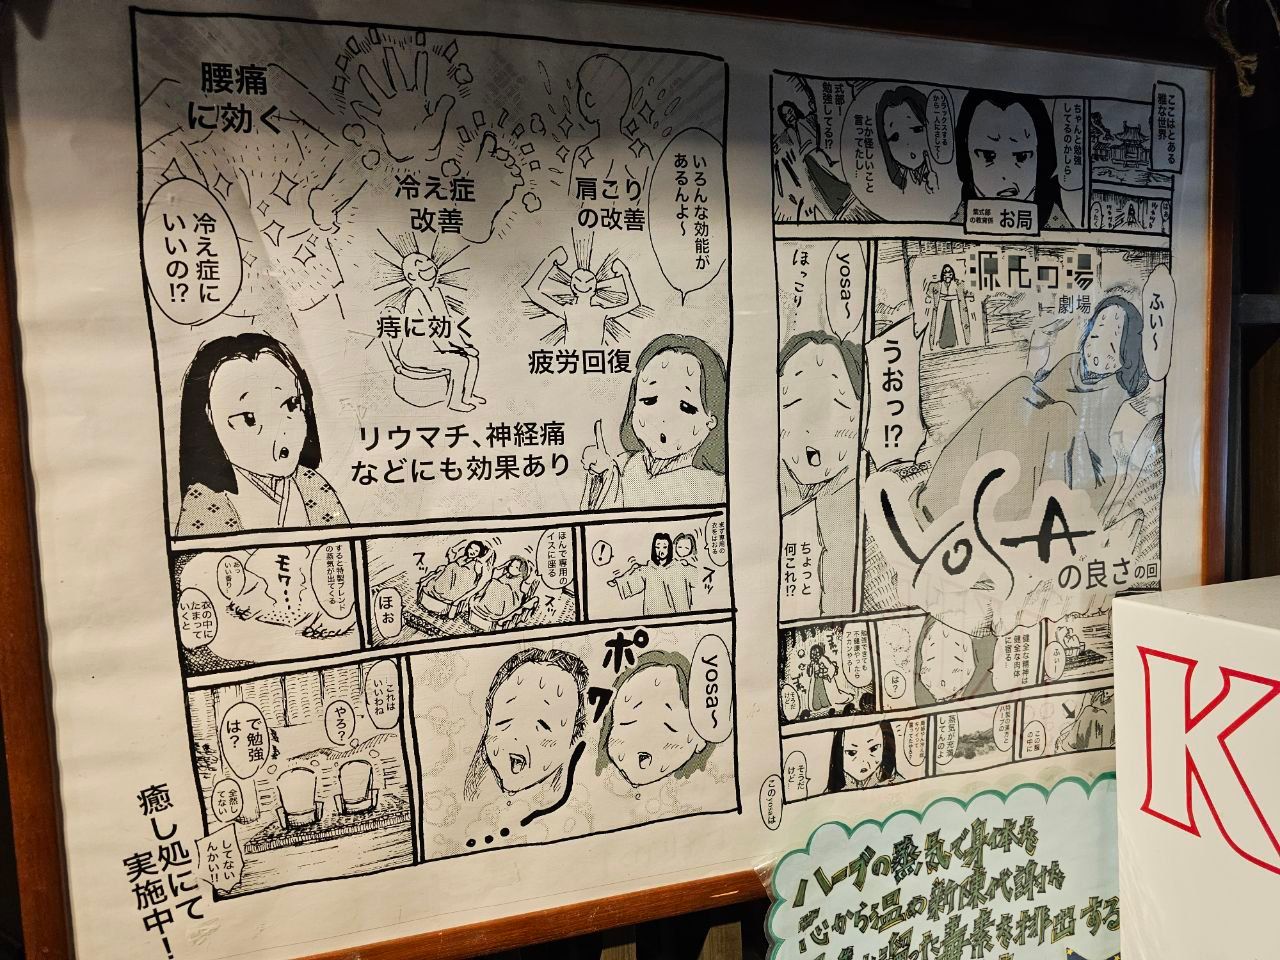 ここはとある
雅な世界
ちゃんと勉強
してるのかしら…
紫式部
の教育係
お局
リラックスする
から一人にさして〜
とか怪しいこと
言ってたし…
式部ー
勉強してる!?
ふい〜
源氏の湯
劇場
うおっ!?
YOSA
の良さの回
yosa〜
ほっこり…
ちょっと
何これ!?
ふぃー
健全な精神は
健全な肉体
に宿る…
は?
勉強できても
不健康やったら
アカンやろー
そうだ
けど
この服
の中に
特製の薬草と
ハーブの
蒸気が充満
してんのよ
そうだ
けど…
このyosaは
いろんな効能が
あるんよ〜
肩こり
の改善
冷え症
改善
腰痛
に効く
冷え症に
いいの!?
痔に効く
疲労回復
リウマチ、神経痛
などにも効果あり
まず専用の
衣をはおる
スッ
!
ほんで専用の
イスに座る
スッ
スッ
ほお
すると特製ブレンド
の蒸気が出てくる
モワ…
いい香り
衣の中に
たまって
いくと
yosa〜
ポワ
これは
いいわね
やろ?
で勉強
は?
全然し
てない
してない
んかい!!
癒し処にて
実施中!
ハーブの蒸気で身体を
芯から温め新陳代謝を
溜った毒素を排出する
K